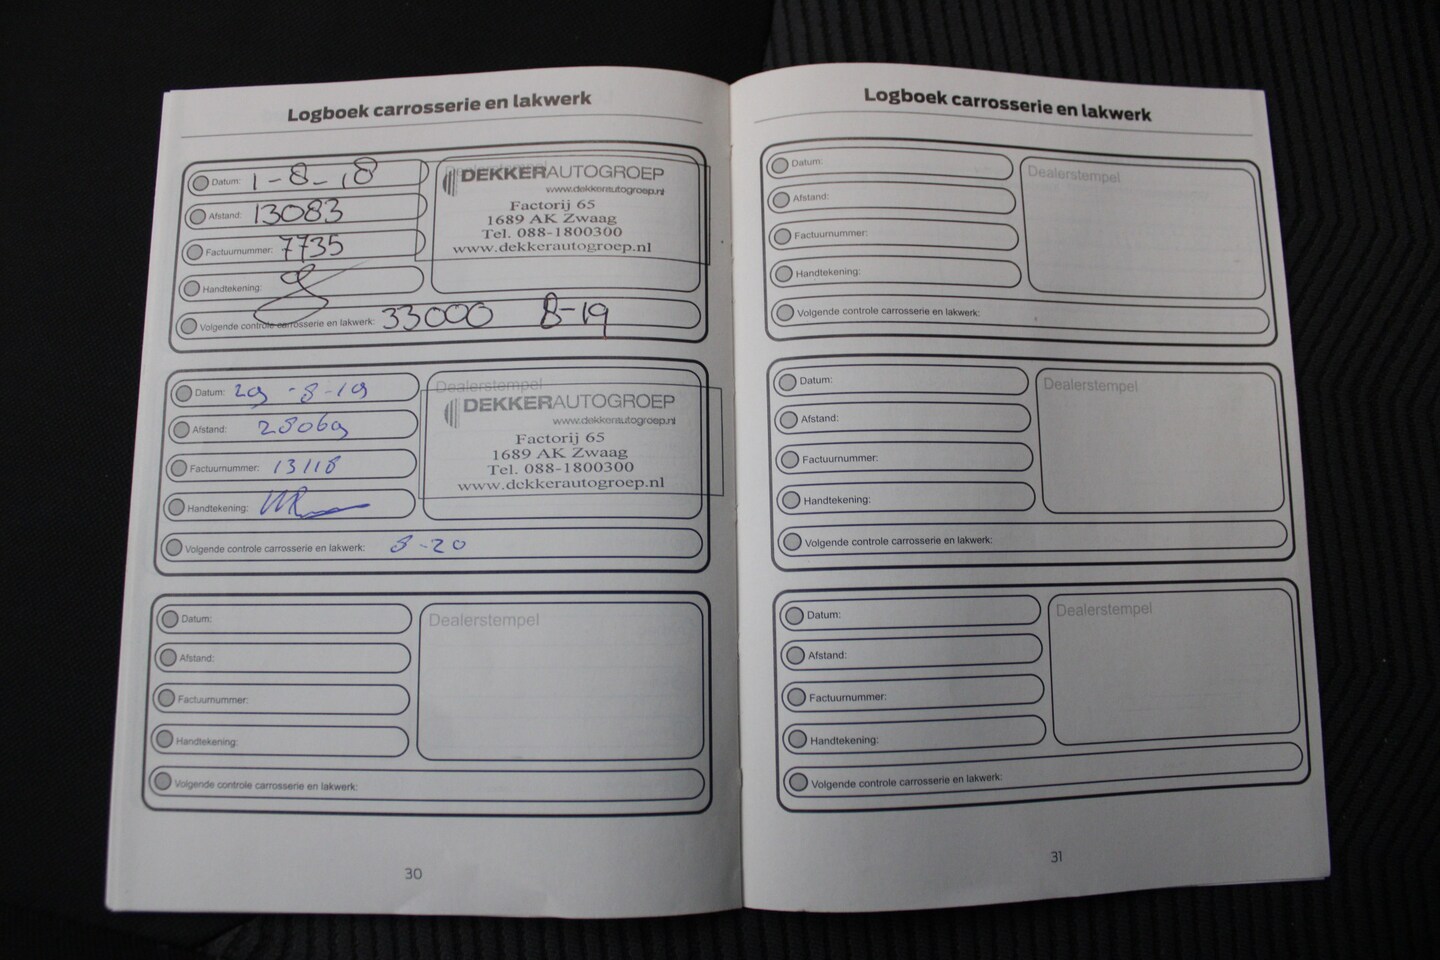 Logboek carrosserie en lakwerk
Datum: 1-8-18
Afstand: 13083
Factuurnummer: 7735
Handtekening:
Volgende controle carrosserie en lakwerk: 33000 8-19
Dealerstempel
DEKKERAUTOGROEP
www.dekkerautogroep.nl
Factorij 65
1689 AK Zwaag
Tel. 088-1800300
www.dekkerautogroep.nl
Datum: 29-8-19
Afstand: 28069
Factuurnummer: 13118
Handtekening:
Volgende controle carrosserie en lakwerk: 8-20
Dealerstempel
DEKKERAUTOGROEP
www.dekkerautogroep.nl
Factorij 65
1689 AK Zwaag
Tel. 088-1800300
www.dekkerautogroep.nl
Datum:
Afstand:
Factuurnummer:
Handtekening:
Volgende controle carrosserie en lakwerk:
Dealerstempel
30
Logboek carrosserie en lakwerk
Datum:
Afstand:
Factuurnummer:
Handtekening:
Volgende controle carrosserie en lakwerk:
Dealerstempel
Datum:
Afstand:
Factuurnummer:
Handtekening:
Volgende controle carrosserie en lakwerk:
Dealerstempel
Datum:
Afstand:
Factuurnummer:
Handtekening:
Volgende controle carrosserie en lakwerk:
Dealerstempel
31